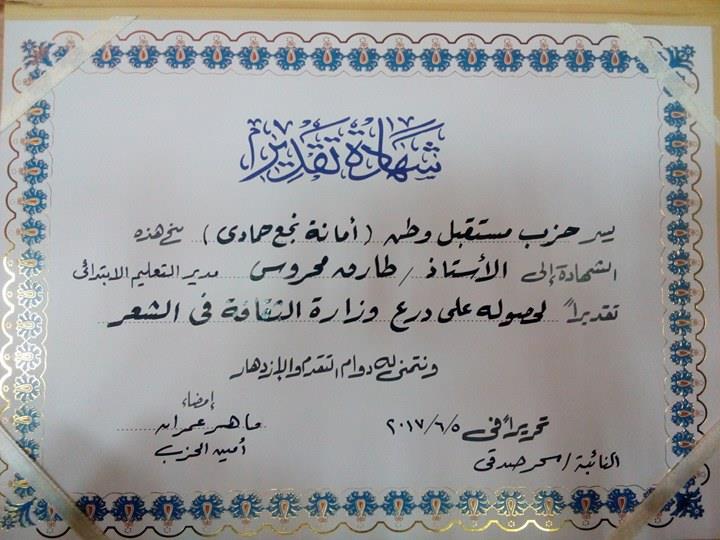 شهادة تقدير
يسر حزب مستقبل وطن (أمانة نجع حمادى) منح هذه
الشهادة إلى الأستاذ / طارق محروس مدير التعليم الابتدائى
تقديراً لحصوله على درع وزارة الثقافة فى الشعر
ونتمنى له دوام التقدم والإزدهار
إمضاء
تحريراً فى ٢٠١٧/٦/٥ ماهر عمران
النائبة / سحر صدقى أمين الحزب